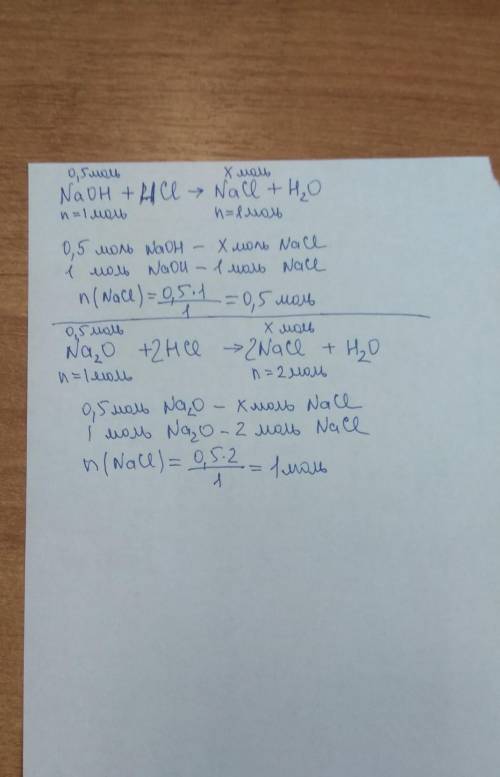 0,5моль х моль
NaOH + HCl → NaCl + H₂O
n=1моль n=1моль
0,5 моль NaOH – х моль NaCl
1 моль NaOH – 1 моль NaCl
n(NaCl) = 0,5·1/1 = 0,5 моль
0,5моль х моль
Na₂O + 2HCl → 2NaCl + H₂O
n=1моль n=2моль
0,5моль Na₂O – х моль NaCl
1 моль Na₂O – 2 моль NaCl
n(NaCl) = 0,5·2/1 = 1моль